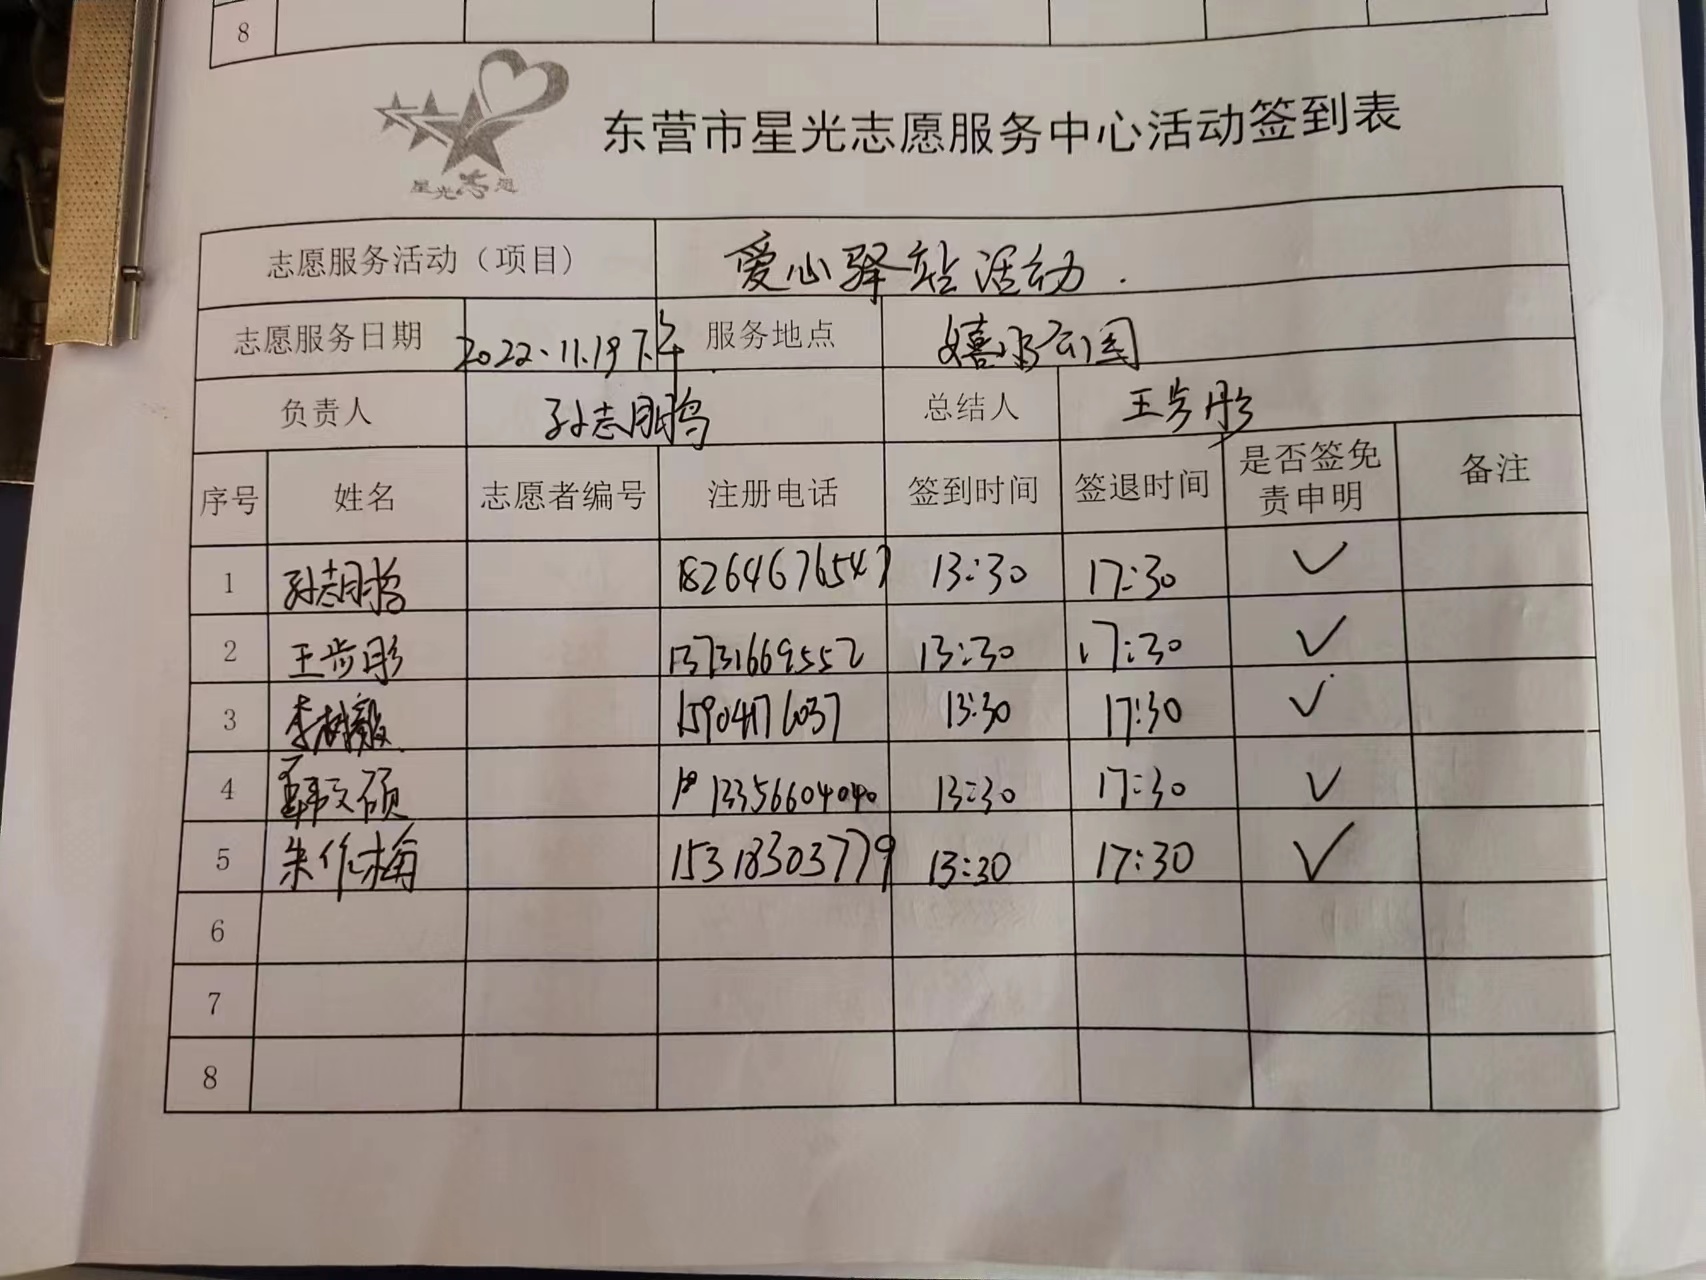 8
星光志愿
东营市星光志愿服务中心活动签到表
志愿服务活动（项目） 爱心驿站活动.
志愿服务日期 2022.11.19下午 服务地点 嬉水公园
负责人 孙志鹏 总结人 王岩彤
序号 姓名 志愿者编号 注册电话 签到时间 签退时间 是否签免责申明 备注
1 孙志鹏 18264676547 13:30 17:30 ✓
2 王岩彤 13731669552 13:30 17:30 ✓
3 李树毅 13:30 17:30 ✓
4 韩文硕 13356604040 13:30 17:30 ✓
5 朱作梅 15318303779 13:30 17:30 ✓
6
7
8